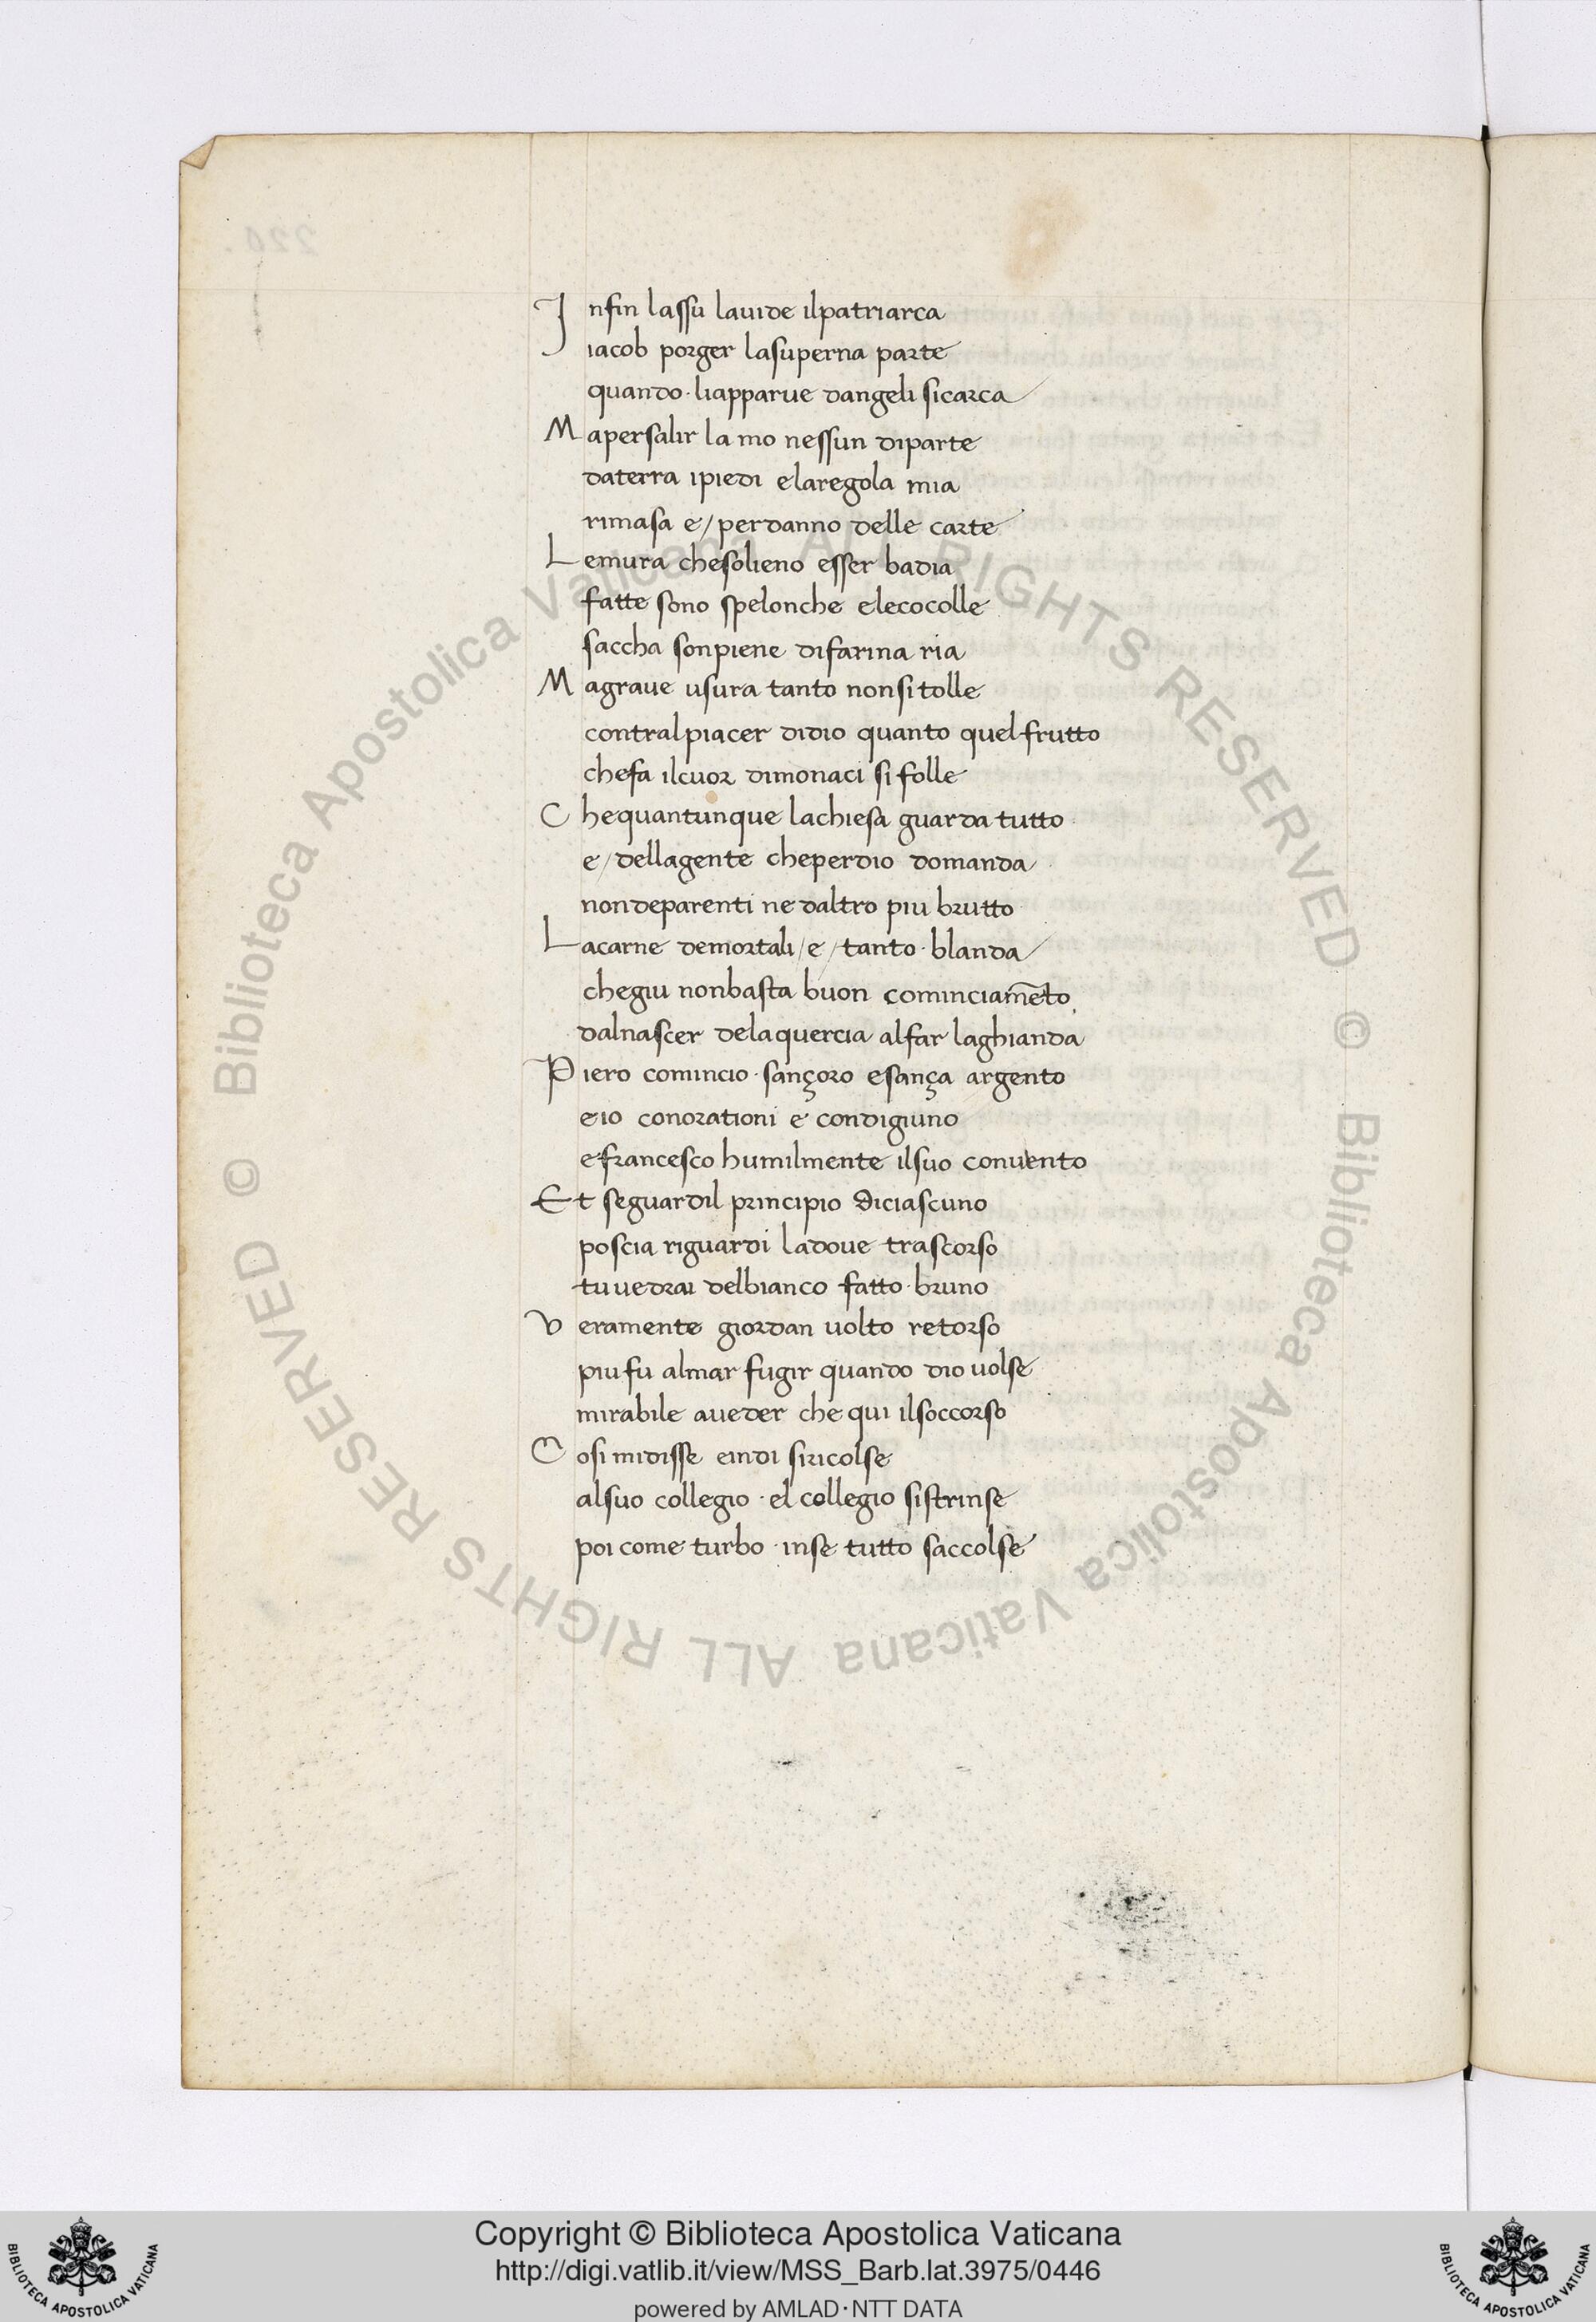 Infin lassu lauide ilpatriarca
iacob porger lasuperna parte
quando · liapparue dangeli sicarca
Mapersalir la mo nessun diparte
daterra ipiedi elaregola mia
rimasa e/perdanno delle carte
Lemura chesolieno esser badia
fatte sono spelonche elecocolle
saccha sonpiene difarina ria
Magraue usura tanto nonsitolle
contralpiacer didio quanto quel frutto
chefa ilcuor dimonaci si folle
Chequantunque lachiesa guarda tutto
e/dellagente cheperdio domanda
nondeparenti ne daltro piu brutto
Lacarne demortali/e/tanto · blanda
chegiu nonbasta buon cominciam̄eto
dalnascer delaquercia alfar laghianda
Piero comincio · sançoro esança argento
eio conorationi e condigiuno
efrancesco humilmente ilsuo conuento
Et seguardil principio diciascuno
poscia riguardi ladoue trascorso
tuuedrai delbianco fatto · bruno
Veramente giordan uolto retorso
piufu almar fugir quando dio uolse
mirabile aueder che qui ilsoccorso
Cosi midisse eindi siricolse
alsuo collegio · el collegio sistrinse
poi come turbo · inse tutto saccolse
220.
© Biblioteca Apostolica Vaticana ALL RIGHTS RESERVED
© Biblioteca Apostolica Vaticana ALL RIGHTS RESERVED
Copyright © Biblioteca Apostolica Vaticana
http://digi.vatlib.it/view/MSS_Barb.lat.3975/0446
powered by AMLAD·NTT DATA
BIBLIOTECA APOSTOLICA VATICANA
BIBLIOTECA APOSTOLICA VATICANA